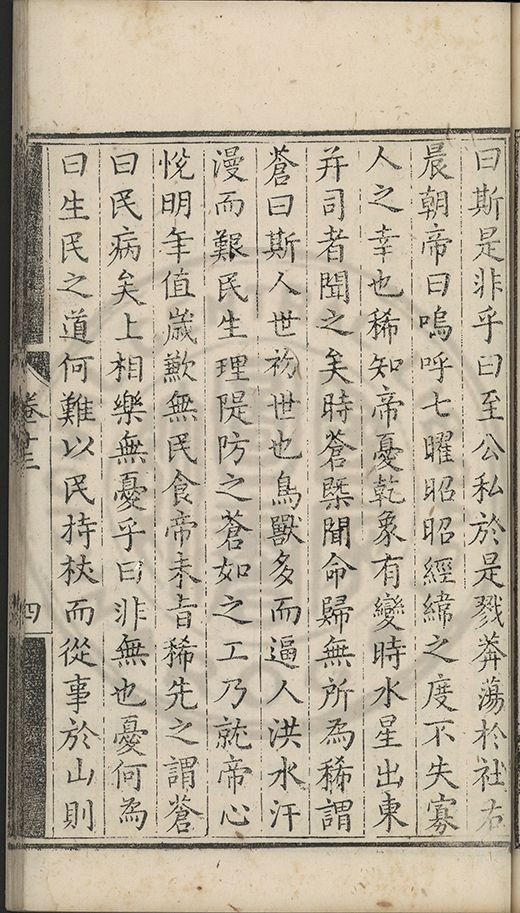 曰斯是非乎曰至公私於是戮莾蕩於社右
晨朝帝曰嗚呼七曜昭昭經緯之度不失寡
人之幸也稀知帝憂乾象有變時水星出東
井司者聞之矣時蒼槩聞命歸無所為稀謂
蒼曰斯人世礽世也鳥獸多而逼人洪水汗
漫而艱民生理隄防之蒼如之工乃就帝心
悅明年值嵗歉無民食帝未旨稀先之謂蒼
曰民病矣上相樂無憂乎曰非無也憂何為
曰生民之道何難以民持梜而從事於山則
卷十三
四